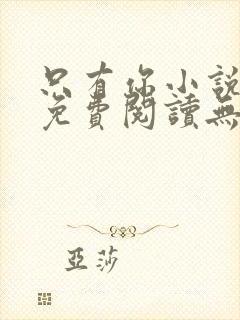 只有你小說
免費閱讀無
亞莎